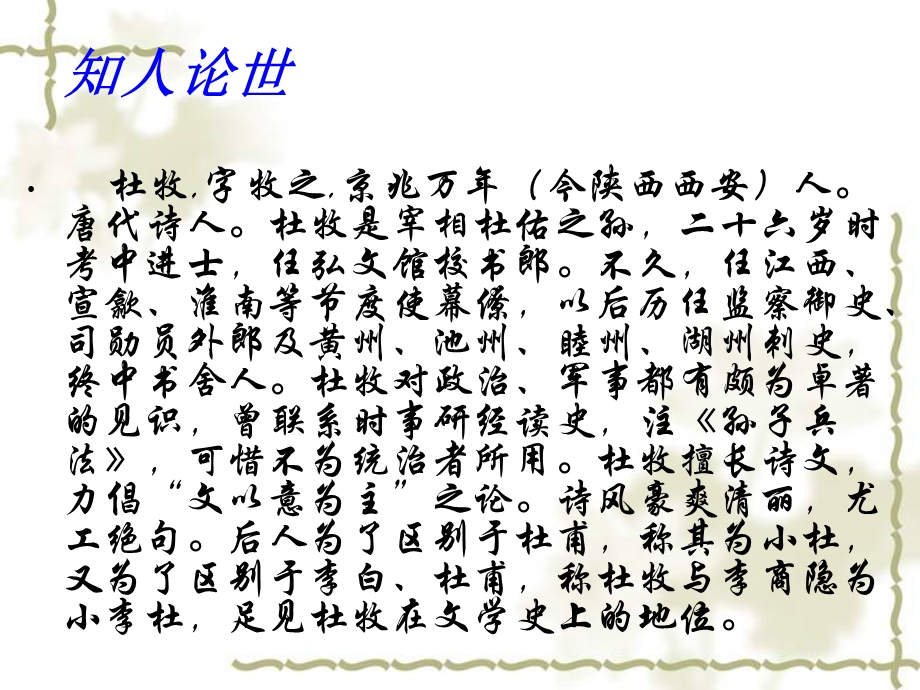 知人论世
• 杜牧,字牧之,京兆万年（今陕西西安）人。
唐代诗人。杜牧是宰相杜佑之孙，二十六岁时
考中进士，任弘文馆校书郎。不久，任江西、
宣歙、淮南等节度使幕僚，以后历任监察御史、
司勋员外郎及黄州、池州、睦州、湖州刺史，
终中书舍人。杜牧对政治、军事都有颇为卓著
的见识，曾联系时事研经读史，注《孙子兵
法》，可惜不为统治者所用。杜牧擅长诗文，
力倡“文以意为主”之论。诗风豪爽清丽，尤
工绝句。后人为了区别于杜甫，称其为小杜，
又为了区别于李白、杜甫，称杜牧与李商隐为
小李杜，足见杜牧在文学史上的地位。